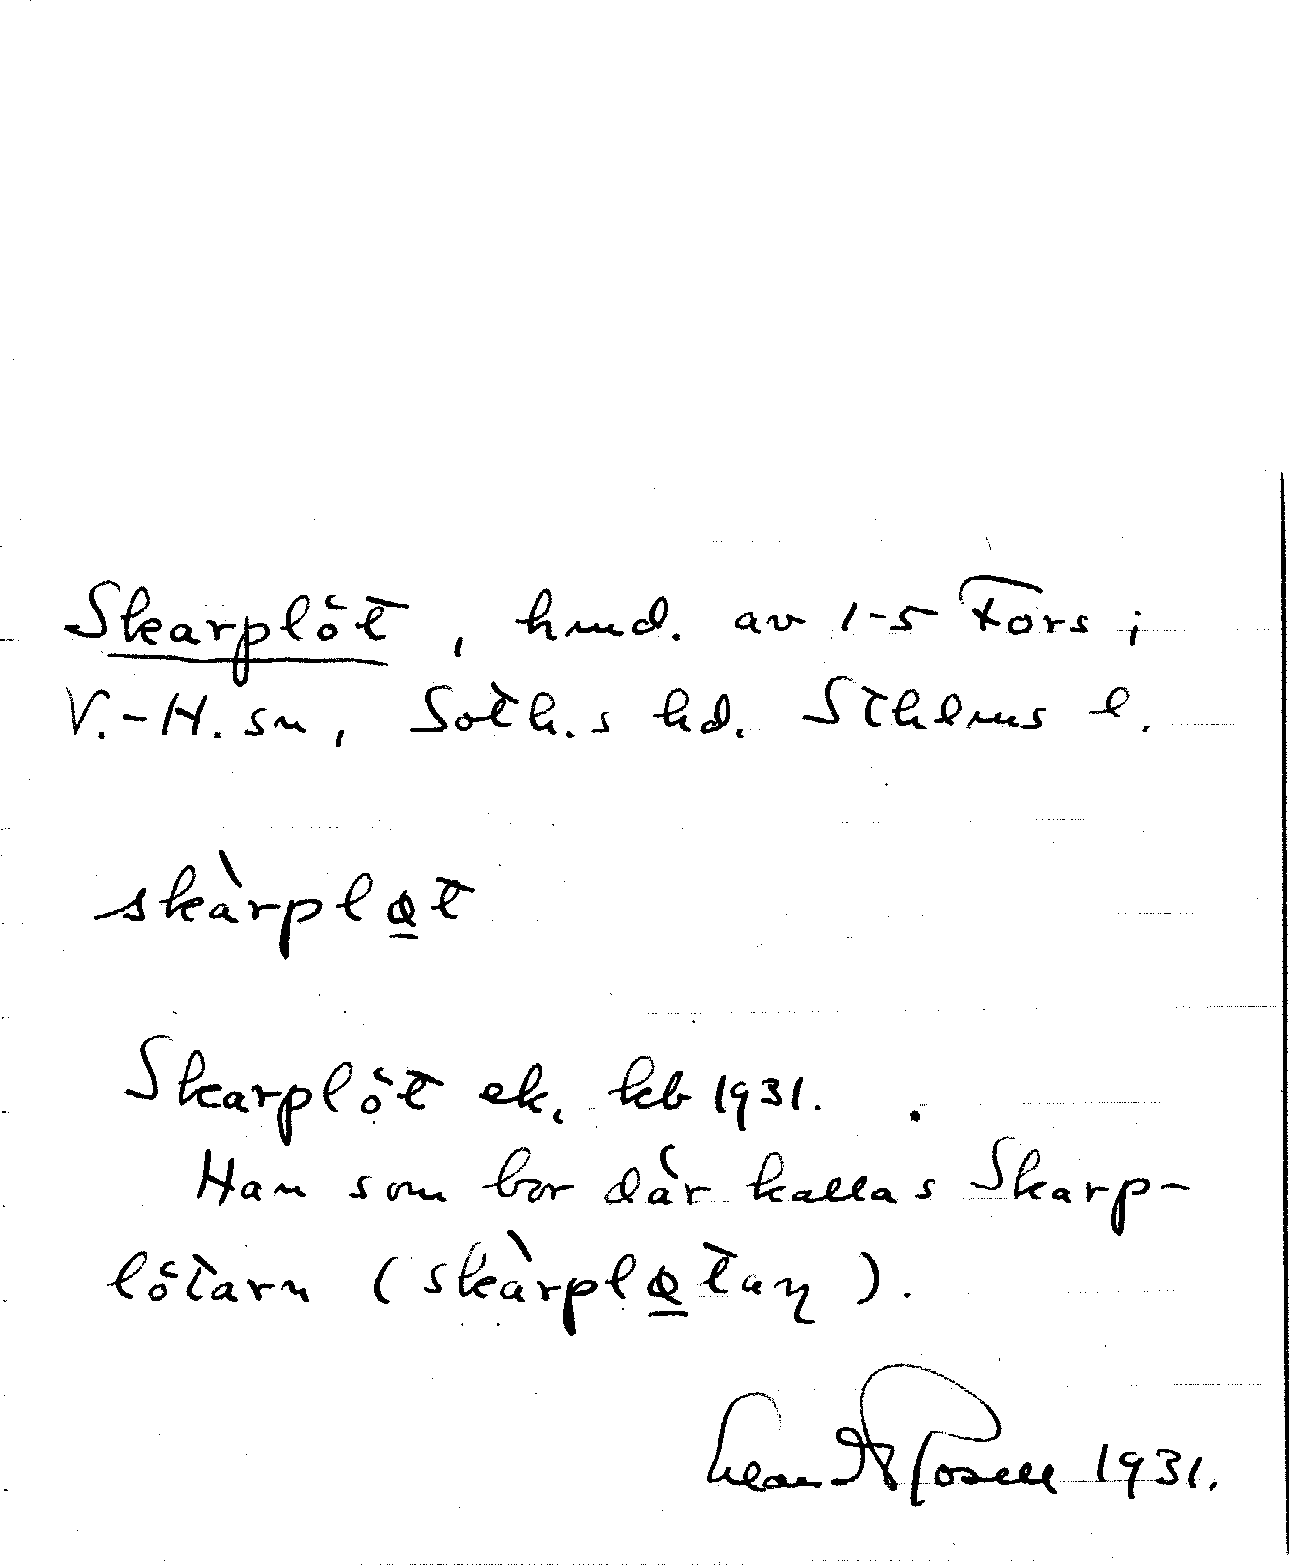 Skarplöt, hmd. av 1-5 Fors i
V.-H. sn, Soth.s hd. Sthlms l.
skàrplø̱t
Skarplöt ek. kb 1931.
Han som bor där kallas Skarp-
lötarn (skàrplø̱taṇ).
1931.